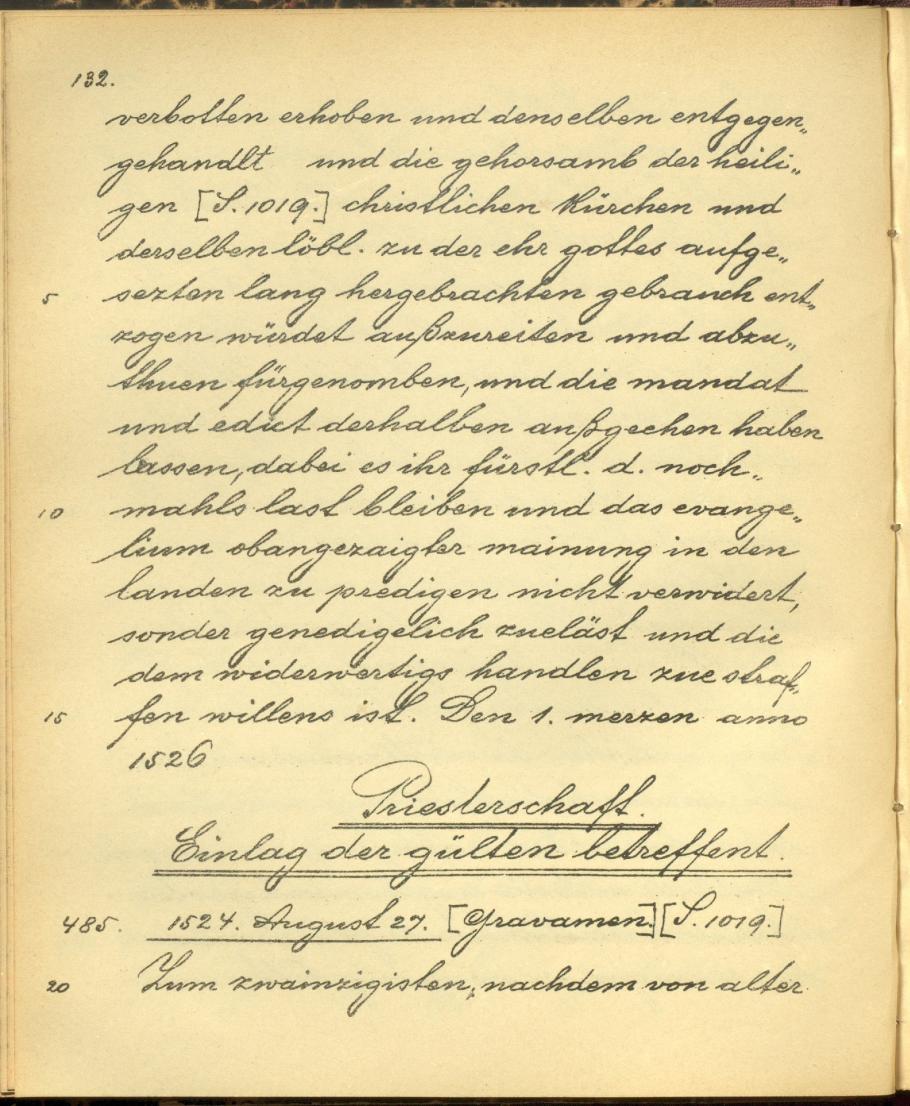 132.
verbotten erhoben und denselben entgegen„
gehandlt und die gehorsamb der heili„
gen [S. 1019.] christlichen Kürchen und
derselben löbl. zu der ehr gottes aufge„
5 sezten lang hergebrachten gebrauch ent„
zogen würdet außzureiten und abzu„
thuen fürgenomben, und die mandat
und edict derhalben außgechen haben
lassen, dabei es ihr fürstl. d. noch„
10 mahls last bleiben und das evange„
lium obangezaigter mainung in den
landen zu predigen nicht verwidert,
sonder genedigelich zueläst und die
dem widerwertigs handlen zue straf„
15 fen willens ist. Den 1. merzen anno
1526
Priesterschaft.
Einlag der gülten betreffent.
485. 1524. August 27. [Gravamen.] [S. 1019.]
20 Zum zwainzigisten, nachdem von alter